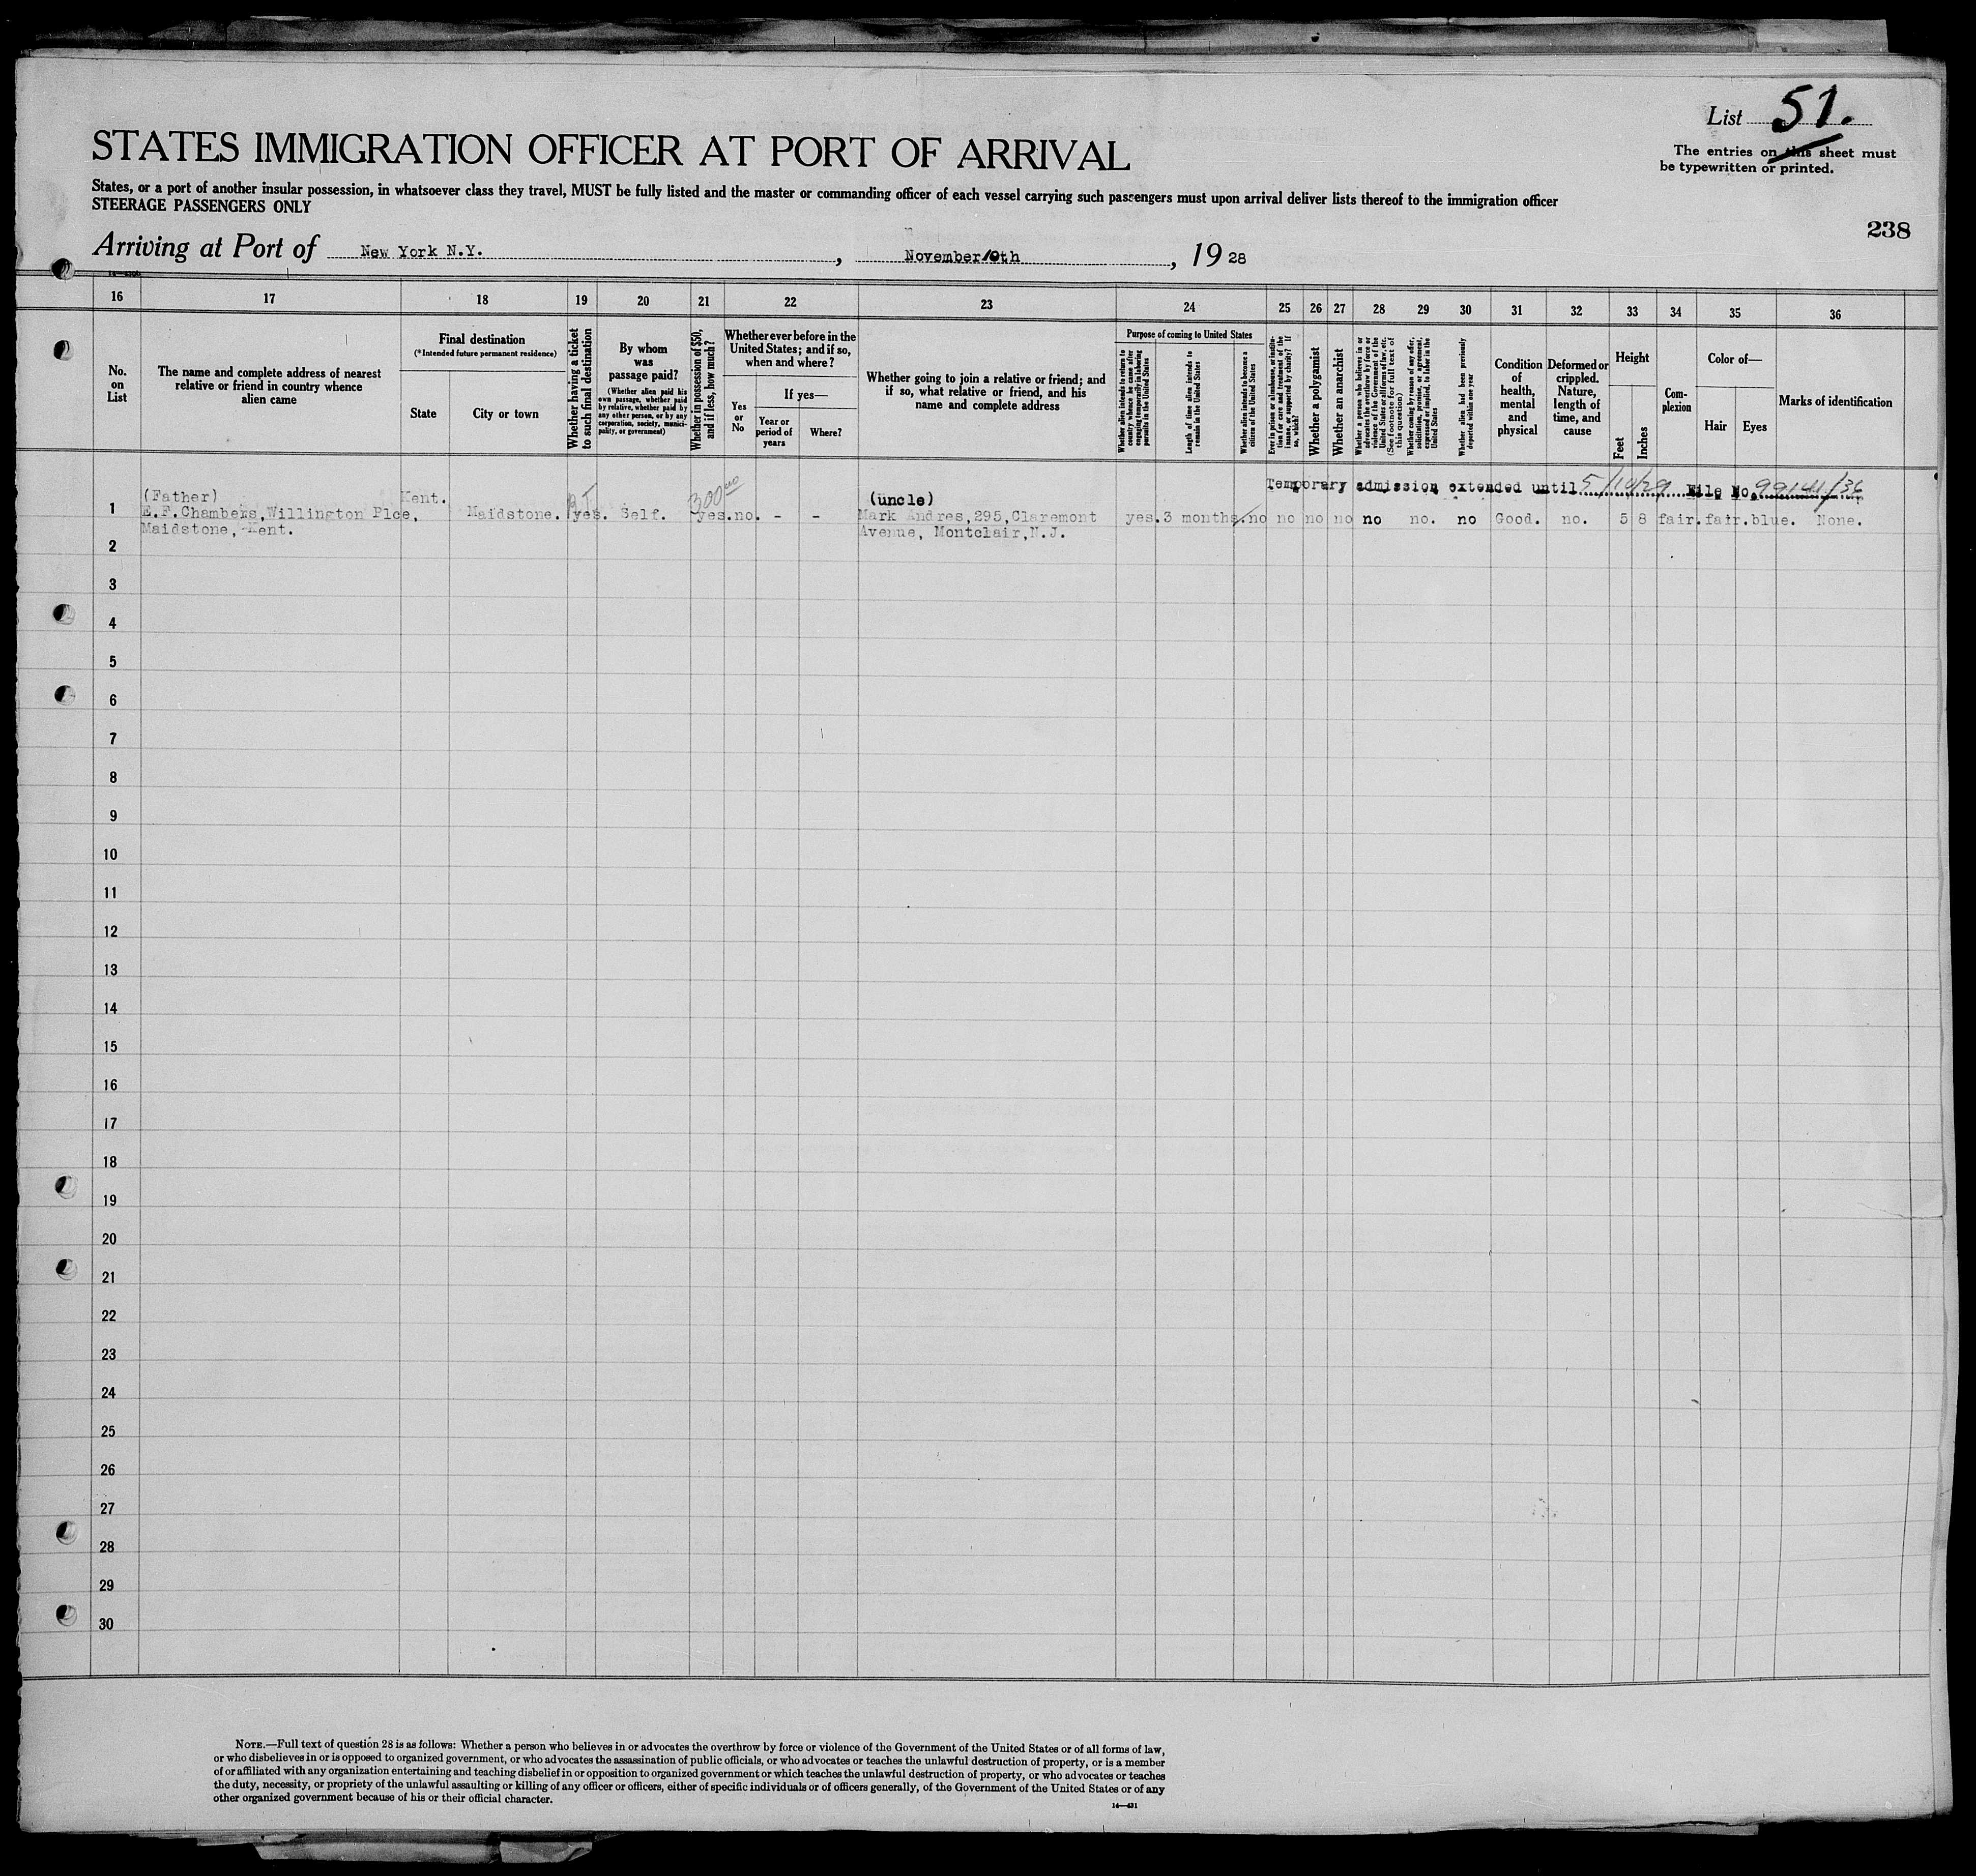 List 51.
The entries on this sheet must
be typewritten or printed.
STATES IMMIGRATION OFFICER AT PORT OF ARRIVAL
States, or a port of another insular possession, in whatsoever class they travel, MUST be fully listed and the master or commanding officer of each vessel carrying such passengers must upon arrival deliver lists thereof to the immigration officer
STEERAGE PASSENGERS ONLY
238
Arriving at Port of New York N.Y. , November 10th , 19 28
16 17 18 19 20 21 22 23 24 25 26 27 28 29 30 31 32 33 34 35 36
No.
on
List
The name and complete address of nearest
relative or friend in country whence
alien came
Final destination
(*Intended future permanent residence)
State City or town
Whether having a ticket
to such final destination
By whom
was
passage paid?
(Whether alien paid his
own passage, whether paid
by relative, whether paid by
any other person, or by any
corporation, society, munici-
pality, or government)
Whether in possession of $50,
and if less, how much?
Whether ever before in the
United States; and if so,
when and where?
Yes
or
No
If yes—
Year or
period of
years
Where?
Whether going to join a relative or friend; and
if so, what relative or friend, and his
name and complete address
Purpose of coming to United States
Whether alien intends to return to
country whence he came after
engaging temporarily in laboring
pursuits in the United States
Length of time alien intends to
remain in the United States
Whether alien intends to become a
citizen of the United States
Ever in prison or almshouse, or institu-
tion for care and treatment of the
insane, or supported by charity? If
so, which?
Whether a polygamist
Whether an anarchist
Whether a person who believes in or
advocates the overthrow by force or
violence of the Government of the
United States or all forms of law, etc.
(See footnote for full text of
this question)
Whether coming by reason of any offer,
solicitation, promise, or agreement,
expressed or implied, to labor in the
United States
Whether alien had been previously
deported within one year
Condition
of
health,
mental
and
physical
Deformed or
crippled.
Nature,
length of
time, and
cause
Height
Feet
Inches
Com-
plexion
Color of—
Hair Eyes
Marks of identification
Temporary admission extended until 5/10/29 File No. 99141/36
(Father) Kent. 300.00 (uncle)
1 E.F.Chambers,Willington Plce, Maidstone. yes. Self. yes. no. - - Mark Andres,295,Claremont yes. 3 months. no no no no no no. no Good. no. 5 8 fair. fair. blue. None.
Maidstone, Kent. Avenue, Montclair,N.J.
2
3
4
5
6
7
8
9
10
11
12
13
14
15
16
17
18
19
20
21
22
23
24
25
26
27
28
29
30
NOTE.—Full text of question 28 is as follows: Whether a person who believes in or advocates the overthrow by force or violence of the Government of the United States or of all forms of law,
or who disbelieves in or is opposed to organized government, or who advocates the assassination of public officials, or who advocates or teaches the unlawful destruction of property, or is a member
of or affiliated with any organization entertaining and teaching disbelief in or opposition to organized government or which teaches the unlawful destruction of property, or who advocates or teaches
the duty, necessity, or propriety of the unlawful assaulting or killing of any officer or officers, either of specific individuals or of officers generally, of the Government of the United States or of any
other organized government because of his or their official character.
14—431